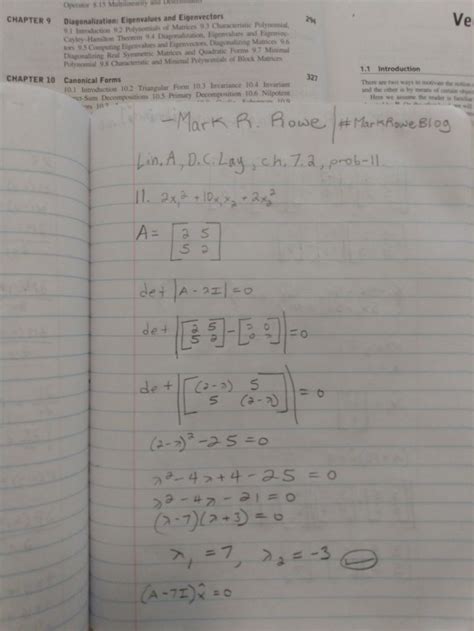 Operator 8.15 Multilinearity and Determinants
CHAPTER 9 Diagonalization: Eigenvalues and Eigenvectors 294
9.1 Introduction 9.2 Polynomials of Matrices 9.3 Characteristic Polynomial,
Cayley-Hamilton Theorem 9.4 Diagonalization, Eigenvalues and Eigenvec-
tors 9.5 Computing Eigenvalues and Eigenvectors, Diagonalizing Matrices 9.6
Diagonalizing Real Symmetric Matrices and Quadratic Forms 9.7 Minimal
Polynomial 9.8 Characteristic and Minimal Polynomials of Block Matrices
CHAPTER 10 Canonical Forms 327
10.1 Introduction 10.2 Triangular Form 10.3 Invariance 10.4 Invariant
Direct-Sum Decompositions 10.5 Primary Decomposition 10.6 Nilpotent
Ve
1.1 Introduction
There are two ways to motivate the notion
and the other is by means of certain objec
Here we assume the reader is familiar
-Mark R. Rowe/#MarkRoweBlog
Lin. A, D.C. Lay, ch. 7.2, prob-11.
11. 2x₁² + 10x₁x₂ + 2x₂²
A = [2 5
5 2]
det |A-λI| = 0
det |[2 5 5 2] - [λ 0 0 λ]| = 0
det |[(2-λ) 5
5 (2-λ)]| = 0
(2-λ)² - 25 = 0
λ² - 4λ + 4 - 25 = 0
λ² - 4λ - 21 = 0
(λ-7)(λ+3) = 0
λ₁ = 7, λ₂ = -3
(A-7I)x̂ = 0